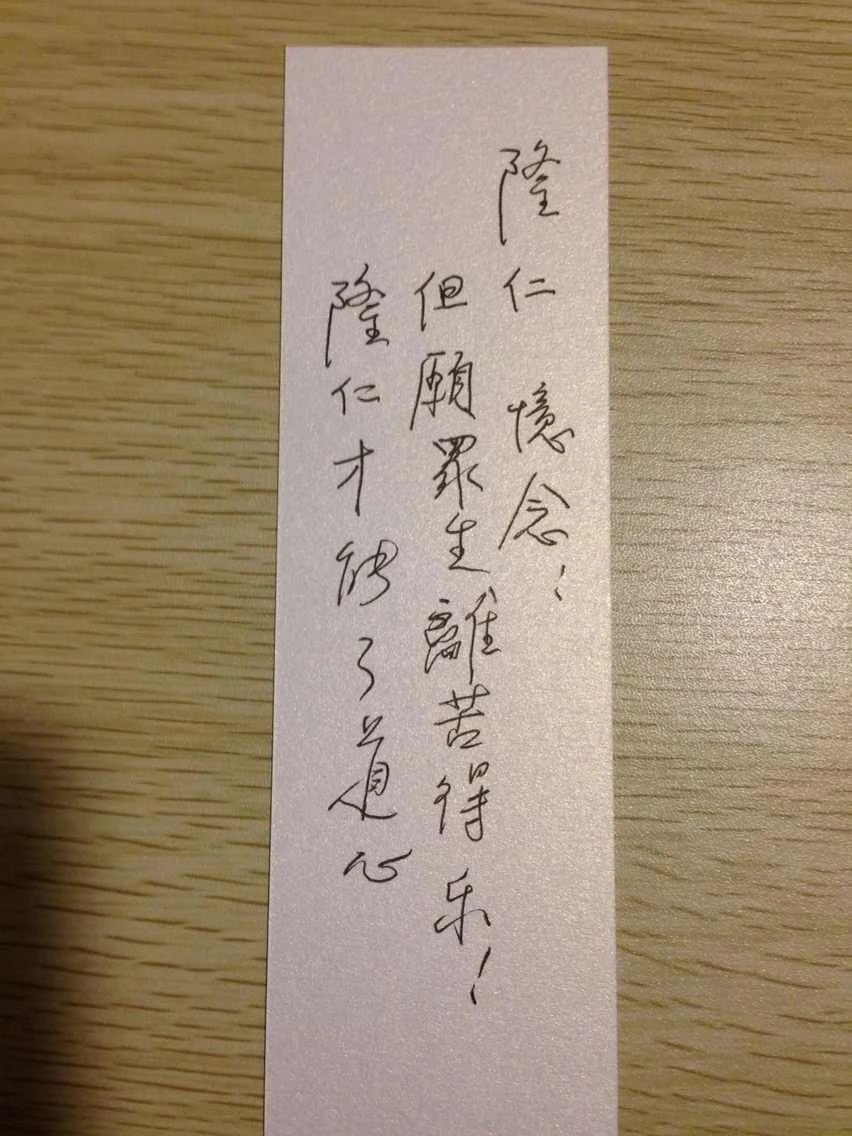 隆仁 憶念：
但願眾生離苦得乐！
隆仁才能了道心